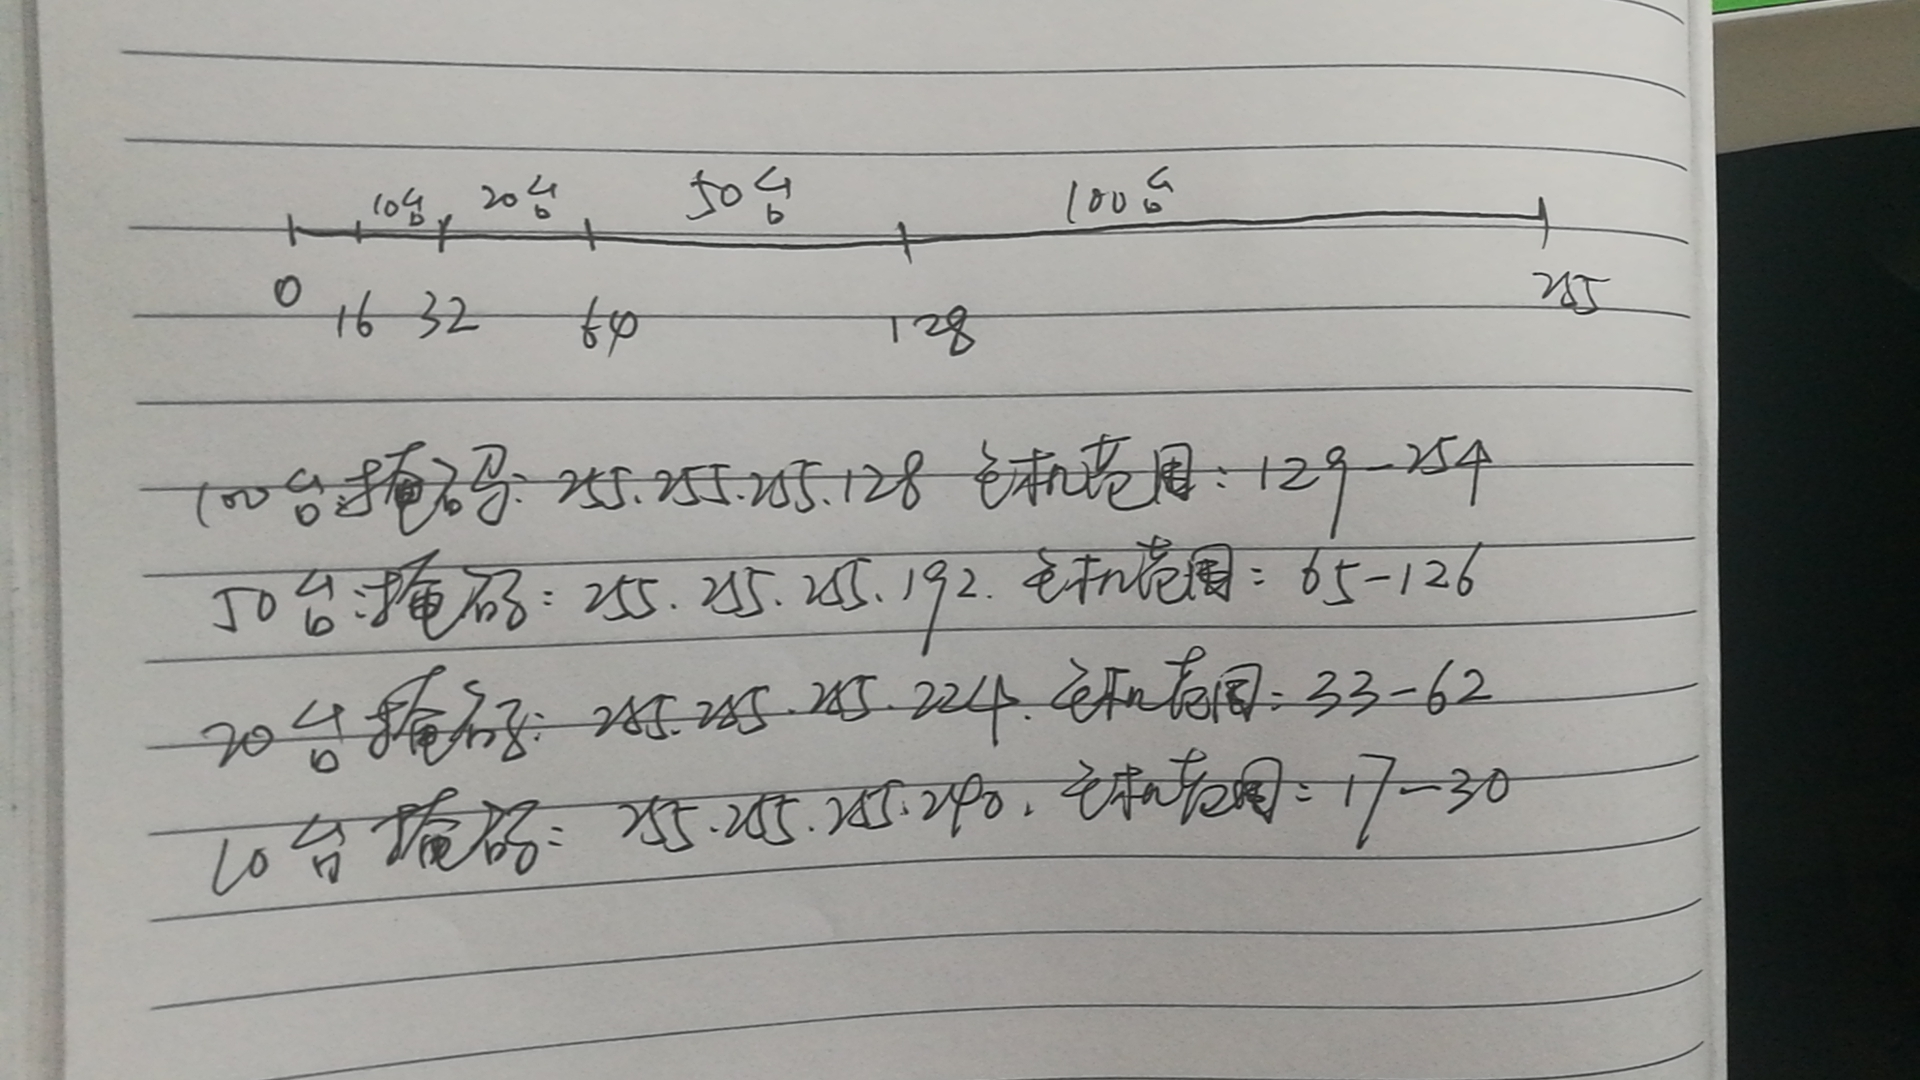 10台 20台 50台 100台
0 16 32 64 128 255
100台掩码: 255.255.255.128 主机范围: 129-254
50台:掩码: 255.255.255.192. 主机范围: 65-126
20台掩码: 255.255.255.224. 主机范围: 33-62
10台掩码: 255.255.255.240. 主机范围: 17-30